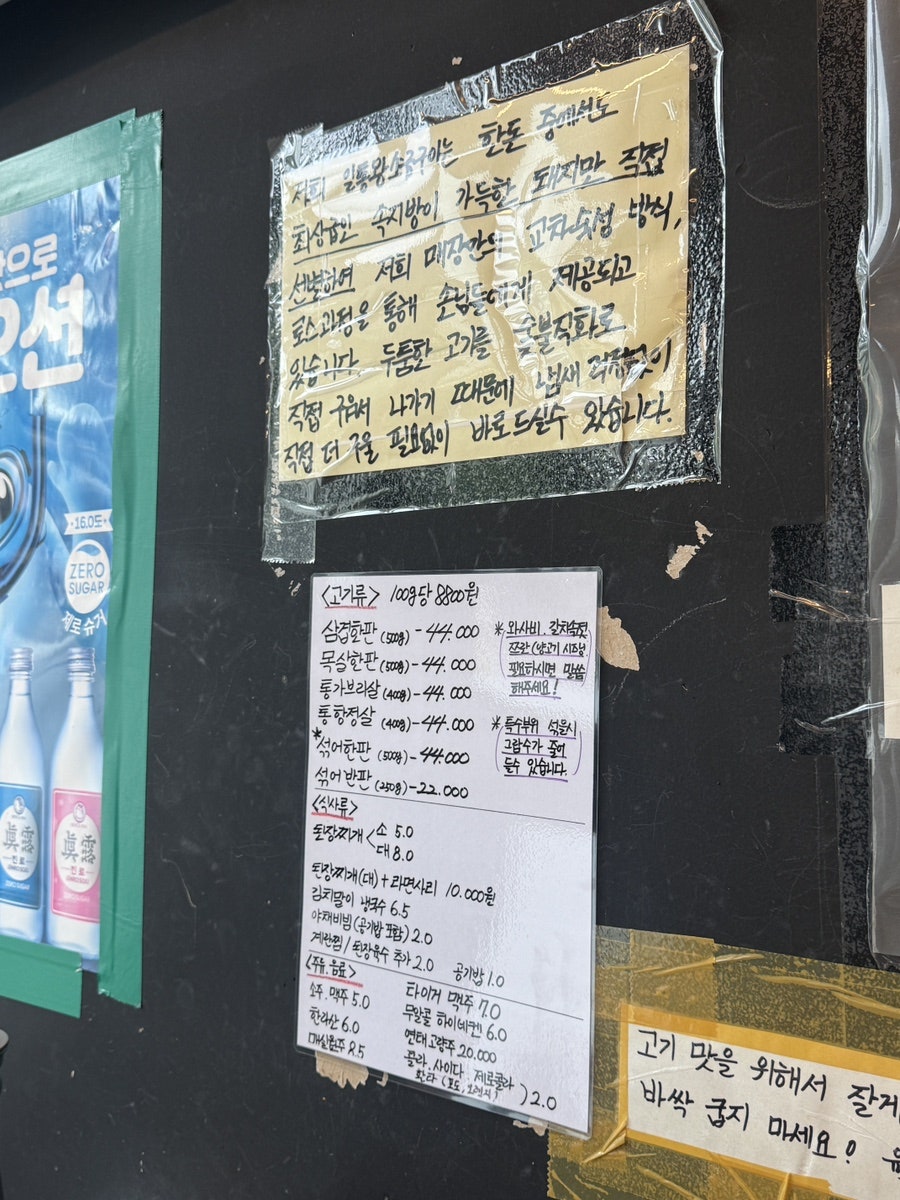 저희 일통왕소금구이는 한돈 중에서도
최상급인 속지방이 가득한 돼지만 직접
선별하여 저희 매장간의 교차숙성 방식,
토스과정을 통해 손님들에게 제공되고
있습니다. 두툼한 고기를 숯불직화로
직접 구워서 나가기 때문에 냄새 걱정없이
직접 더 구울 필요없이 바로드실수 있습니다.
맛으로
16.0도
ZERO
SUGAR
제로슈거
眞露
진로
ZERO SUGAR
眞露
진로
ZERO SUGAR
<고기류> 100g당 8800원
삼겹한판 (500g) - 44.000
목살한판 (500g) - 44.000
통가브리살 (400g) - 44.000
통항정살 (400g) - 44.000
*섞어한판 (500g) - 44.000
섞어반판 (250g) - 22.000
* 와사비. 갈치속젓
쯔란 (양고기 시즈닝)
필요하시면 말씀
해주세요!
* 특수부위 섞을시
그람수가 줄어
들수 있습니다.
<식사류>
된장찌개 < 소 5.0
대 8.0
된장찌개(대) + 라면사리 10.000원
김치말이 냉국수 6.5
야채비빔 (공기밥 포함) 2.0
계란찜 / 된장육수 추가 2.0
공기밥 1.0
<주류.음료>
소주. 맥주 5.0
한라산 6.0
매실원주 8.5
타이거 맥주 7.0
무알콜 하이네켄 6.0
연태고량주 20.000
콜라. 사이다. 제로콜라
환타 (포도, 오렌지) ) 2.0
고기 맛을 위해서 잘게
바싹 굽지 마세요!